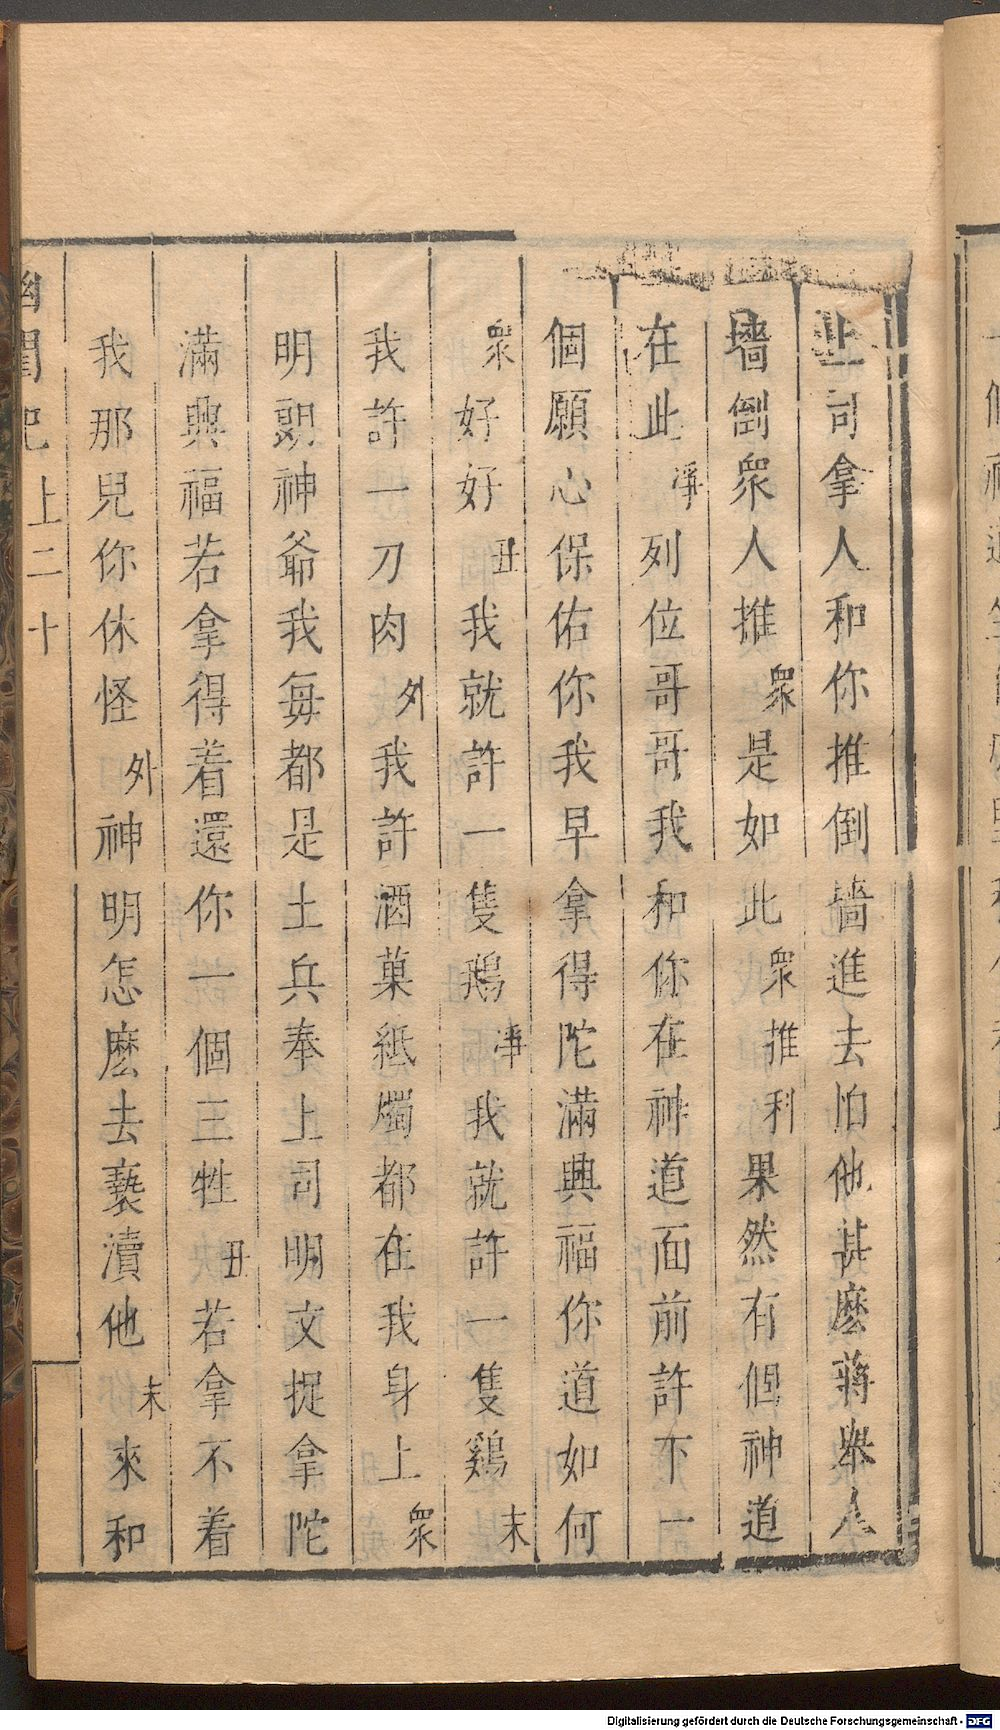 上司拿人和你推倒墻進去怕他甚麽蔣舉人
墻倒衆人推衆是如此衆推科果然有個神道
在此淨列位哥哥我和你在神道面前許下一
個願心保佑你我早拿得陀滿興福你道如何
衆好好丑我就許一隻鵝淨我就許一隻鷄末
我許一刀肉外我許酒菓紙燭都在我身上衆
明朗神爺我每都是土兵奉上司明文捉拿陀
滿興福若拿得着還你一個三牲丑若拿不着
我那兒你休怪外神明怎麽去褻瀆他末來和
幽閨記 上二十
Digitalisierung gefördert durch die Deutsche Forschungsgemeinschaft - DFG